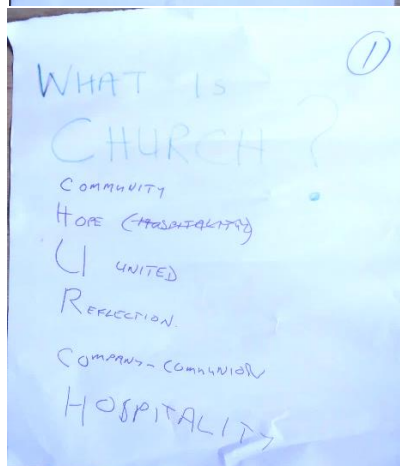 ①
WHAT IS
CHURCH?
COMMUNITY
HOPE (HOSPITALITY)
U UNITED
REFLECTION.
COMPANY-COMMUNION
HOSPITALITY